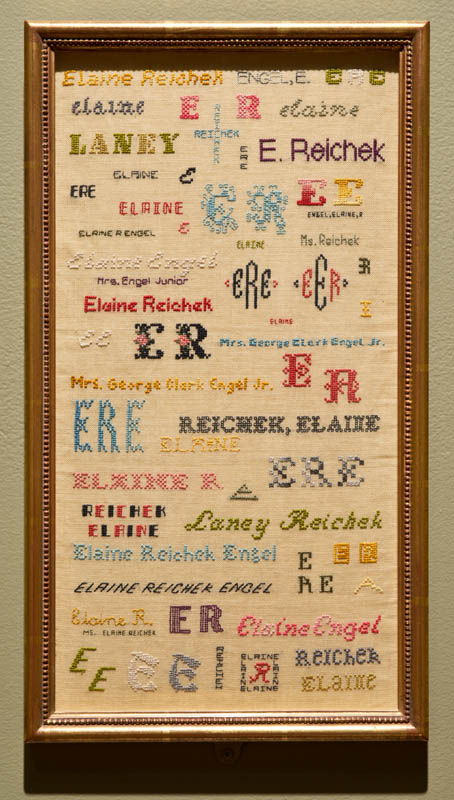 Elaine Reichek ENGEL, E. E R E
elaine E R elaine
REICHEK
LANEY REICHEK E. Reichek
ERE
ELAINE E
ERE ELAINE E R E E
ENGEL, ELAINE, R
ELAINE R. ENGEL E ELAINE Ms. Reichek
Elaine Engel ERE EER R
Mrs. Engel Junior
Elaine Reichek ELAINE E
EE E R Mrs. George Clark Engel Jr.
Mrs. George Clark Engel Jr. E R
ERE REICHEK, ELAINE
ELAINE
ELAINE R ERE
REICHEK
ELAINE Laney Reichek
Elaine Reichek Engel E E R
ELAINE REICHEK ENGEL R E
Elaine R. E R Elaine Engel
MS. ELAINE REICHEK
E E E REICHEK ELAINE R ELAINE Reichek
Elaine